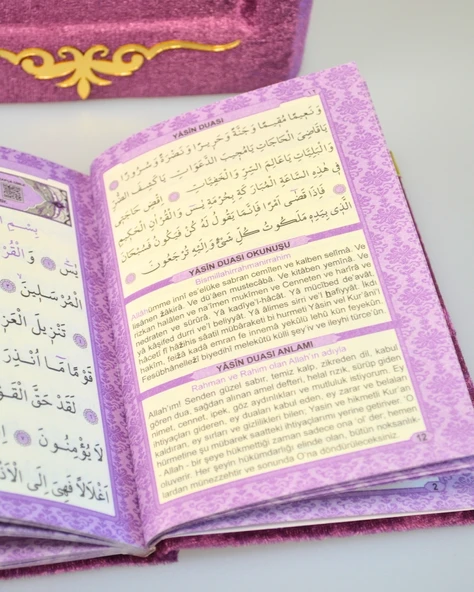 YÂSİN DUASI
وَنَعِيمًا مُقِيمًا وَجَنَّةً وَحَرِيرًا وَنَضْرَةً وَسُرُورًا
يَاقَاضِىَ الْحَاجَاتِ يَامُجِيبَ الدَّعَوَاتِ يَاكَاشِفَ الضُّرِّ
وَالْبَلِيَّاتِ يَاعَالِمَ السِّرِّ وَالْخَفِيَّاتِ اِقْضِ حَاجَتِى
فِى هٰذِهِ السَّاعَةِ الْمُبَارَكَةِ بِحُرْمَةِ يٰسٓ وَالْقُرْاٰنِ الْحَكِيمِ
فَاِذَا قَضٰٓى اَمْرًا فَاِنَّمَا يَقُولُ لَهُ كُنْ فَيَكُونُ فَسُبْحَانَ
الَّذِى بِيَدِهِ مَلَكُوتُ كُلِّ شَىْءٍ وَاِلَيْهِ تُرْجَعُونَ
YÂSİN DUASI OKUNUŞU
Bismillâhirrahmanirrahim
Allâhümme innî es'elüke sabran cemîlen ve kalben selîmâ. Ve
lisânen zâkirâ. Ve düâen mustecâbâ. Ve kitâben yemînâ. Ve
rizkan halâlen ve na'îmen mukîmâ. Ve Cenneten ve harîrâ ve
nedraten ve sürûrâ. Yâ kadîye'l-hâcât. Yâ mücîbed de'avât.
yâ kâşifed durri ve'l beliyyât. Yâ âlimes sirri ve'l hafiyyât. İkdi
hâcetî fî hâzihis sâatil mübâraketi bi hurmeti Yâsin vel Kur'ân'i'l
hakîm, feizâ kadâ emran fe innemâ yekûlü lehû kün feyekûn.
Fesübhânellezî biyedihî melekûtü külli şey'iv ve ileyhi türce'ûn.
YÂSİN DUASI ANLAMI
Rahman ve Rahim olan Allah'ın adıyla
Allah'ım! Senden güzel sabır, temiz kalp, zikreden dil, kabul
gören dua, sağdan alınan amel defteri, helal rızık, sürüp giden
nimet, cennet, ipek, göz aydınlıkları ve mutluluk istiyorum. Ey
ihtiyaçları gideren, ey duaları kabul eden, ey zarar ve belaları
kaldıran, ey sırları ve gizlilikleri bilen; Yasin ve hikmetli Kur'an
hürmetine şu mübarek saatteki ihtiyaçlarımı yerine getiriver. 'O
- Allah - bir şeye hükmettiği zaman sadece ona 'ol' der, hemen
oluverir. Her şeyin hükümdarlığı elinde olan, bütün noksanlık-
lardan münezzehtir ve sonunda O'na döndürüleceksiniz.
12
بِسْمِ
يٰسٓ وَالْقُرْ
الْمُرْسَلِينَ
تَنْزِيلَ الْعَزِ
قَوْمًا مَٓا اُنْذِرَ
لَقَدْ حَقَّ الْقَوْ
لَا يُؤْمِنُونَ
اَغْلَالًا فَهِىَ اِلَى الْاَذْ
2